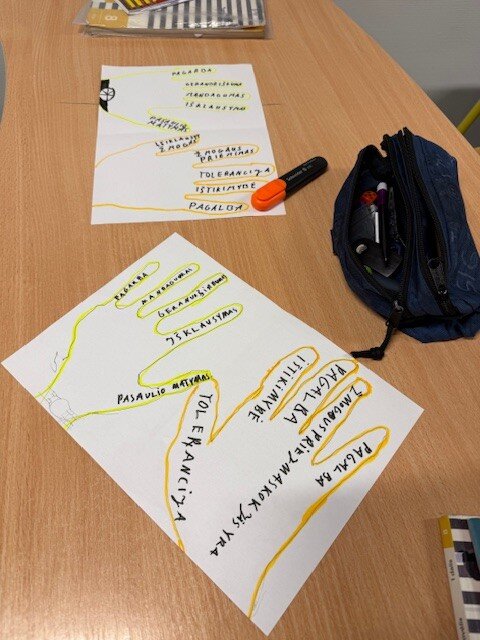 PAGARBA
GERANORIŠKUMAS
MANDAGUMAS
IŠKLAUSYMAS
PASAULIO
MATYMAS
IŠKLAUSYTI
ŽMOGAUS
PRIĖMIMAS
TOLERANCIJA
IŠTIKIMYBĖ
PAGALBA
PAGARBA
MANDAGUMAS
IŠKLAUSYMAS
PASAULIO MATYMAS
TOLERANCIJA
IŠTIKIMYBĖ
PAGALBA
ŽMOGAUS PRIĖJMAS KOK JIS YRA
PAGALBA
8